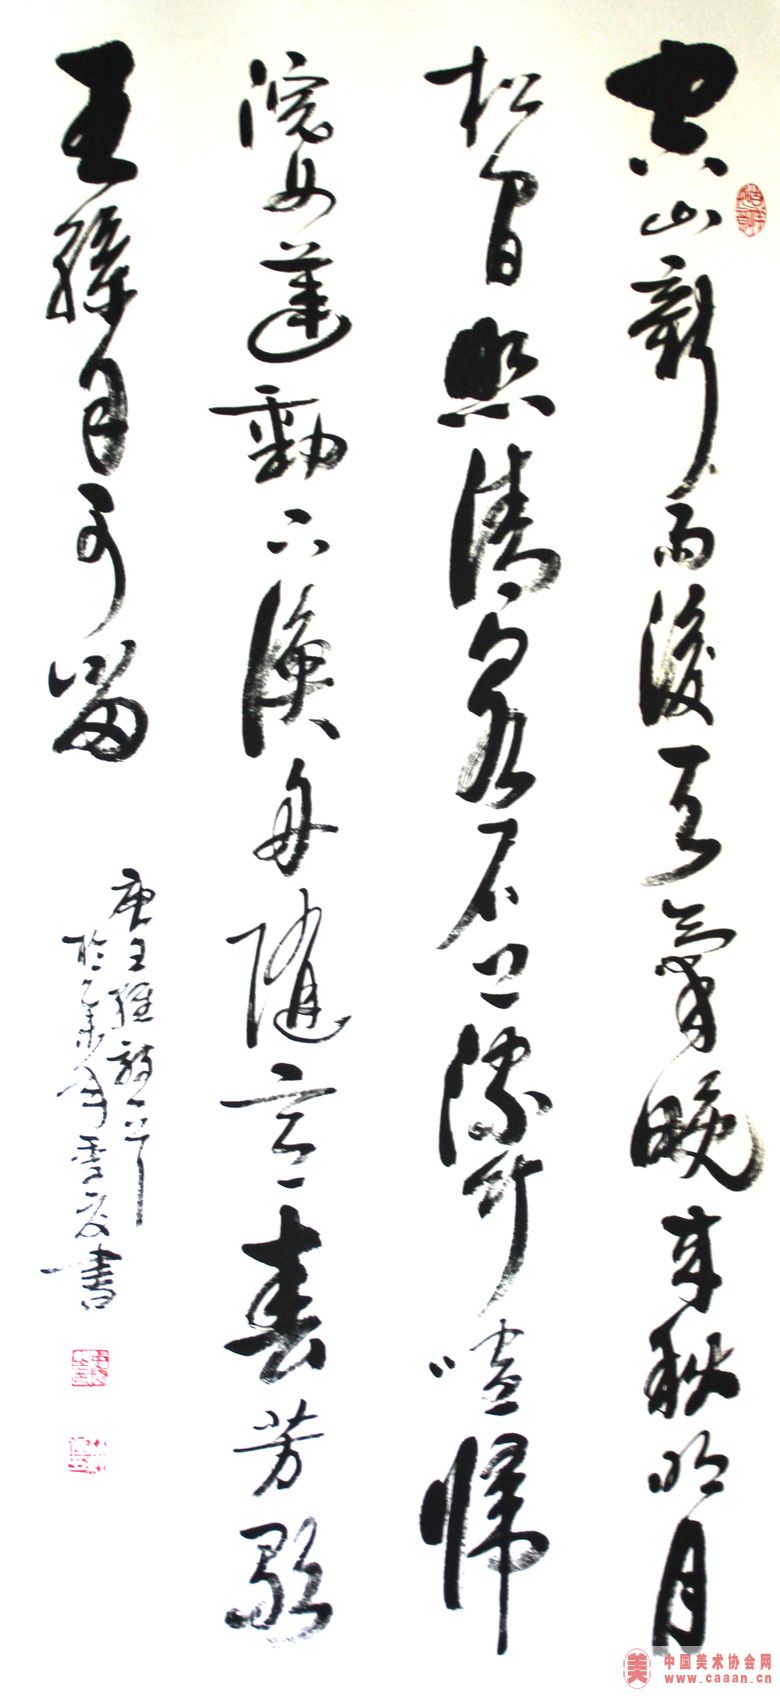 空山新雨後天氣晚來秋明月
松間照清泉石上流竹喧歸
浣女蓮動下漁舟隨意春芳歇
王孫自可留
唐王維詩一首
書
中国美术协会网
www.caaan.cn